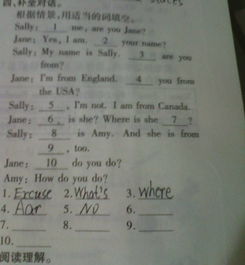 四、补全对话。
根据情景,用适当的词填空。
Sally: 1 me, are you Jane?
Jane: Yes, I am. 2 your name?
Sally: My name is Sally. 3 are you
from?
Jane: I'm from England. 4 you from
the USA?
Sally: 5, I'm not. I am from Canada.
Jane: 6 is she? Where is she 7?
Sally: 8 is Amy. And she is from
9, too.
Jane: 10 do you do?
Amy: How do you do?
1. Excuse 2. What's 3. Where
4. 5. NO 6.
7. 8. 9.
10.
阅读理解。